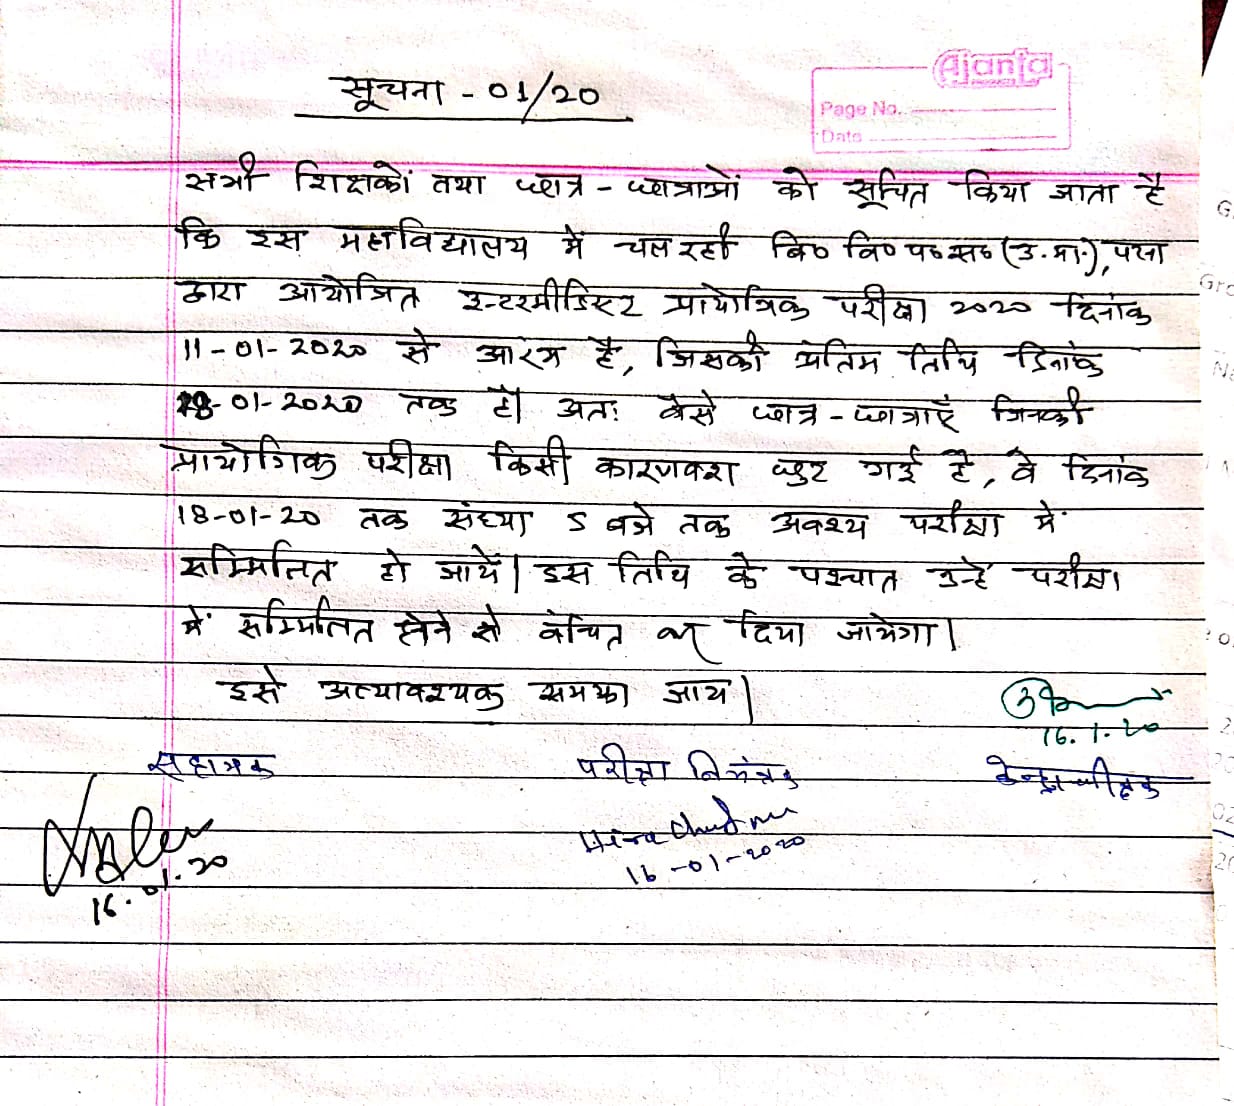 सूचना - 01/20
Ajanta
Page No.
Date
सभी शिक्षकों तथा छात्र - छात्राओं को सूचित किया जाता है
कि इस महाविद्यालय में चल रही बि० वि० प० स० (उ. मा.), पटना
द्वारा आयोजित इन्टरमीडिएट प्रायोगिक परीक्षा 2020 दिनांक
11-01-2020 से आरंभ है, जिसकी अंतिम तिथि दिनांक
18-01-2020 तक है। अतः वैसे छात्र - छात्राएँ जिनकी
प्रायोगिक परीक्षा किसी कारणवश छुट गई है, वे दिनांक
18-01-20 तक संध्या 5 बजे तक अवश्य परीक्षा में
सम्मिलित हो जायें। इस तिथि के पश्चात उन्हें परीक्षा
में सम्मिलित होने से वंचित कर दिया जायेगा।
इसे अत्यावश्यक समझा जाय।
16.1.20
सहायक परीक्षा नियंत्रक केन्द्राधीक्षक
16.01.20
16-01-2020